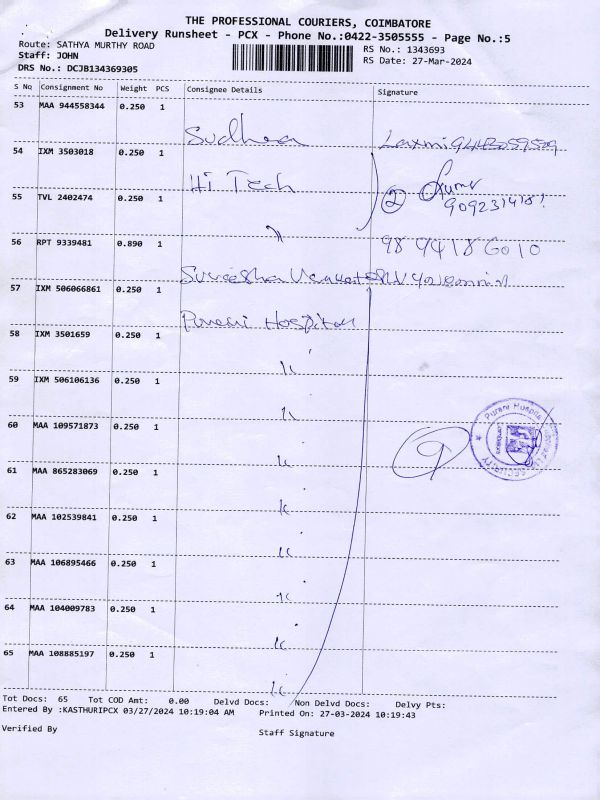 THE PROFESSIONAL COURIERS, COIMBATORE
Delivery Runsheet - PCX - Phone No.:0422-3505555 - Page No.:5
Route: SATHYA MURTHY ROAD RS No.: 1343693
Staff: JOHN RS Date: 27-Mar-2024
DRS No.: DCJB134369305
S No Consignment No Weight PCS Consignee Details Signature
53 MAA 944558344 0.250 1
Sudhea Laxmi
54 IXM 3503018 0.250 1
Hi Tech 2 Kumar
55 TVL 2402474 0.250 1
56 RPT 9339481 0.890 1 98 94186010
Sureesha
57 IXM 506066861 0.250 1
Purani Hospital
58 IXM 3501659 0.250 1
59 IXM 506106136 0.250 1
60 MAA 109571873 0.250 1
9 Purani Hospital SECURITY
61 MAA 865283069 0.250 1
62 MAA 102539841 0.250 1
63 MAA 106895466 0.250 1
64 MAA 104009783 0.250 1
65 MAA 108885197 0.250 1
Tot Docs: 65 Tot COD Amt: 0.00 Delvd Docs: Non Delvd Docs: Delvy Pts:
Entered By :KASTHURIPCX 03/27/2024 10:19:04 AM Printed On: 27-03-2024 10:19:43
Verified By Staff Signature